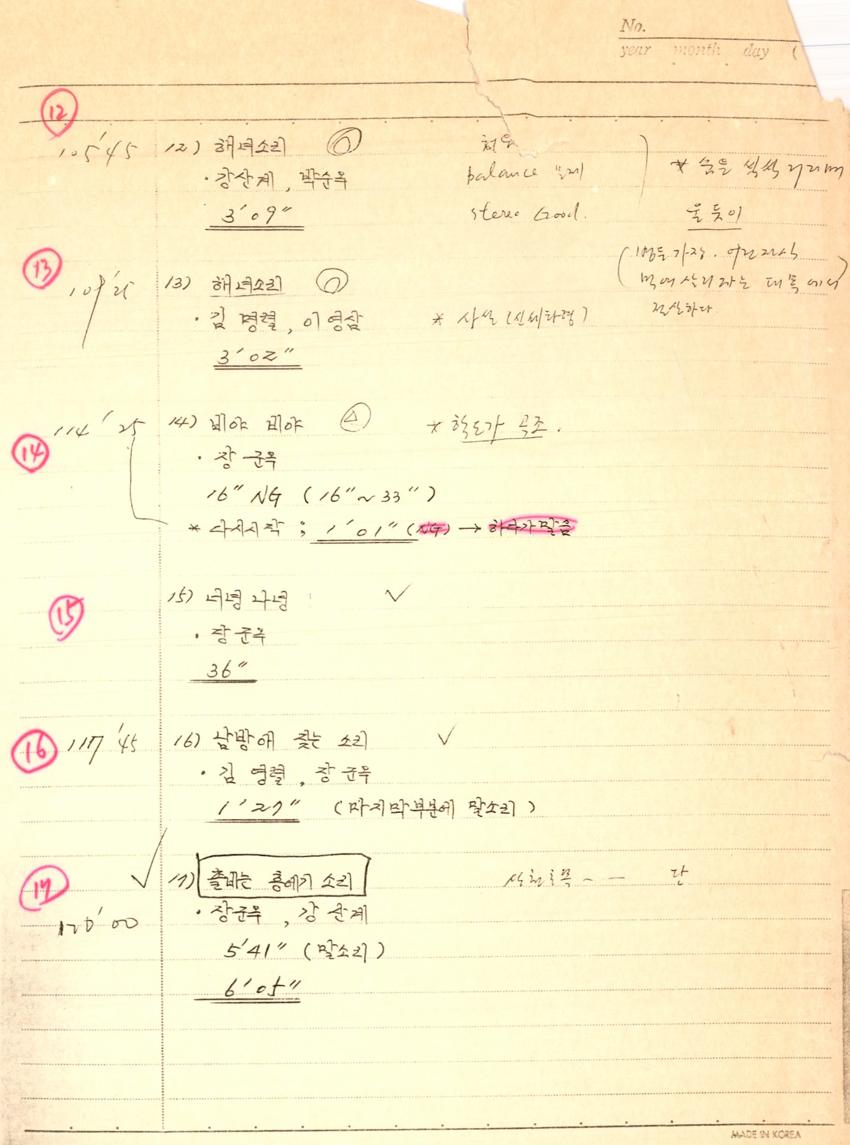 No.
year month day (
⑫
105'45 12) 해녀소리 ◎ 처음
· 강산계, 박순옥 balance 문제 * 숨을
3'09" stereo Good. 울듯이
(병든가장. 어린자식
먹여살리자는 대목에서
절실하다
⑬
109'25 13) 해녀소리 ◎
· 김영렬, 이영삼 * 사설(신세타령)
3'02"
⑭
114'25 14) 비야 비야 △ * 학도가 곡조.
· 장군옥
16" NG (16"~33")
* 다시시작; 1'01" (NG) → 하다가 말음
⑮
15) 너녕 나녕 ✓
· 장군옥
36"
⑯
117'45 16) 남방애 찧는 소리 ✓
· 김영렬, 장군옥
1'27" (마지막부분에 말소리)
⑰ ✓
17) 출비는 홍애기 소리 단
120'00 · 장군옥, 강산계
5'41" (말소리)
6'05"
MADE IN KOREA